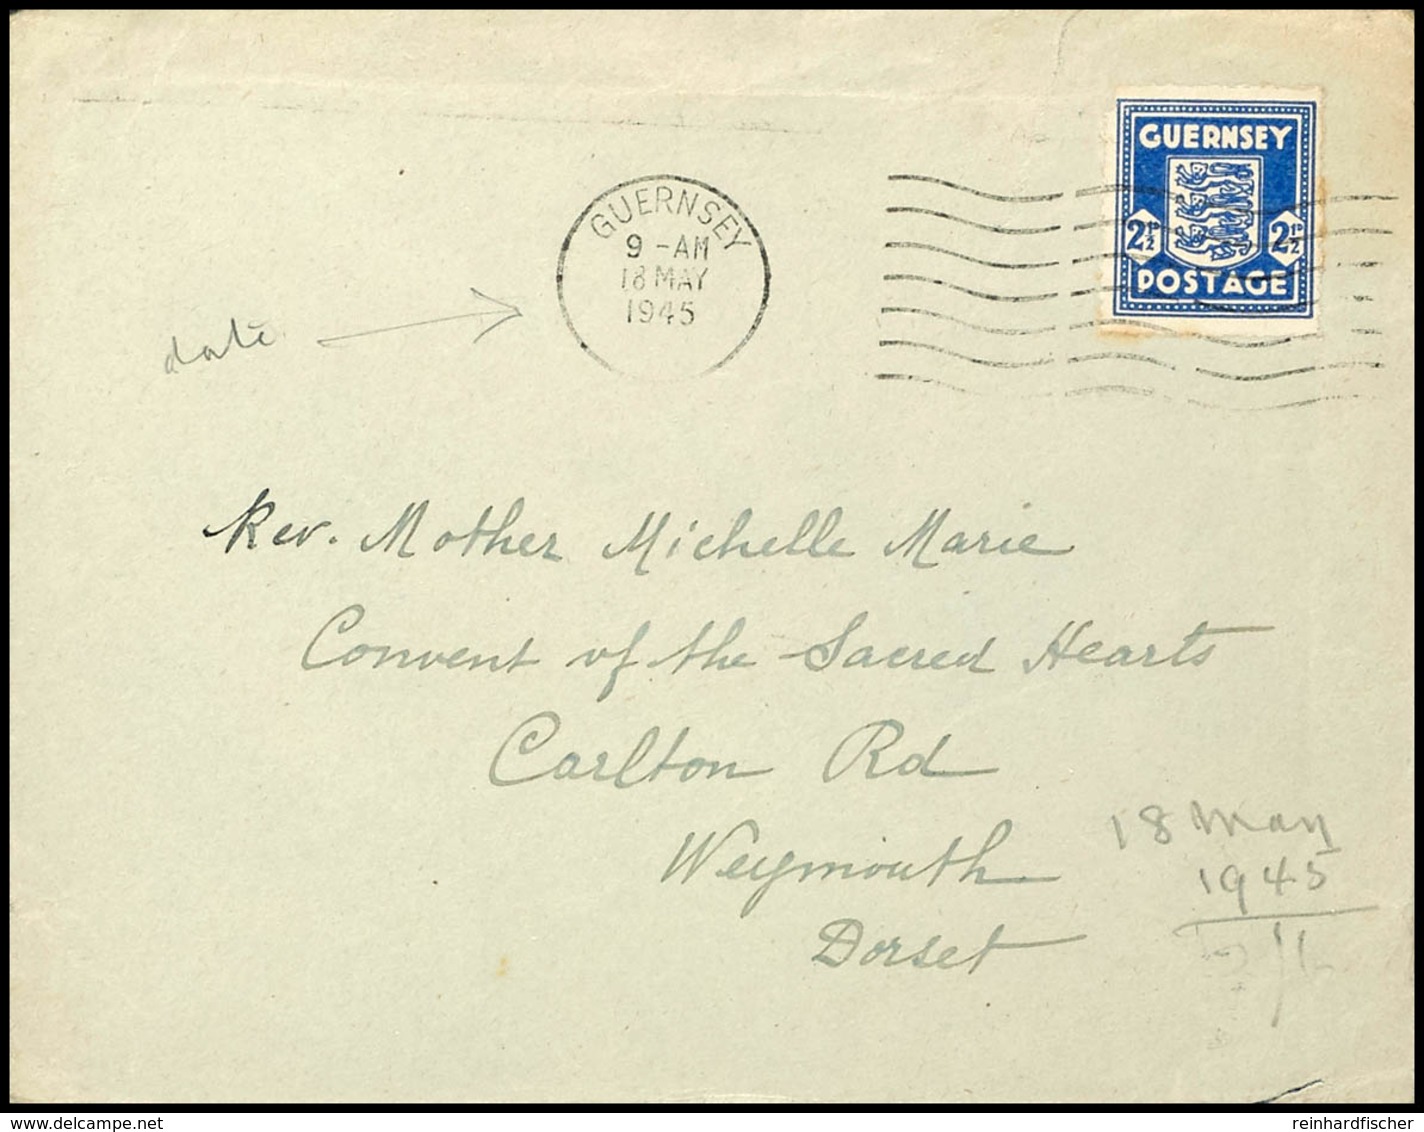 GUERNSEY
2½D 2½D
POSTAGE
GUERNSEY
9 - AM
18 MAY
1945
date
Rev. Mother Michelle Marie
Convent of the Sacred Hearts
Carlton Rd
Weymouth
Dorset
18 May
1945
reinhardfischer